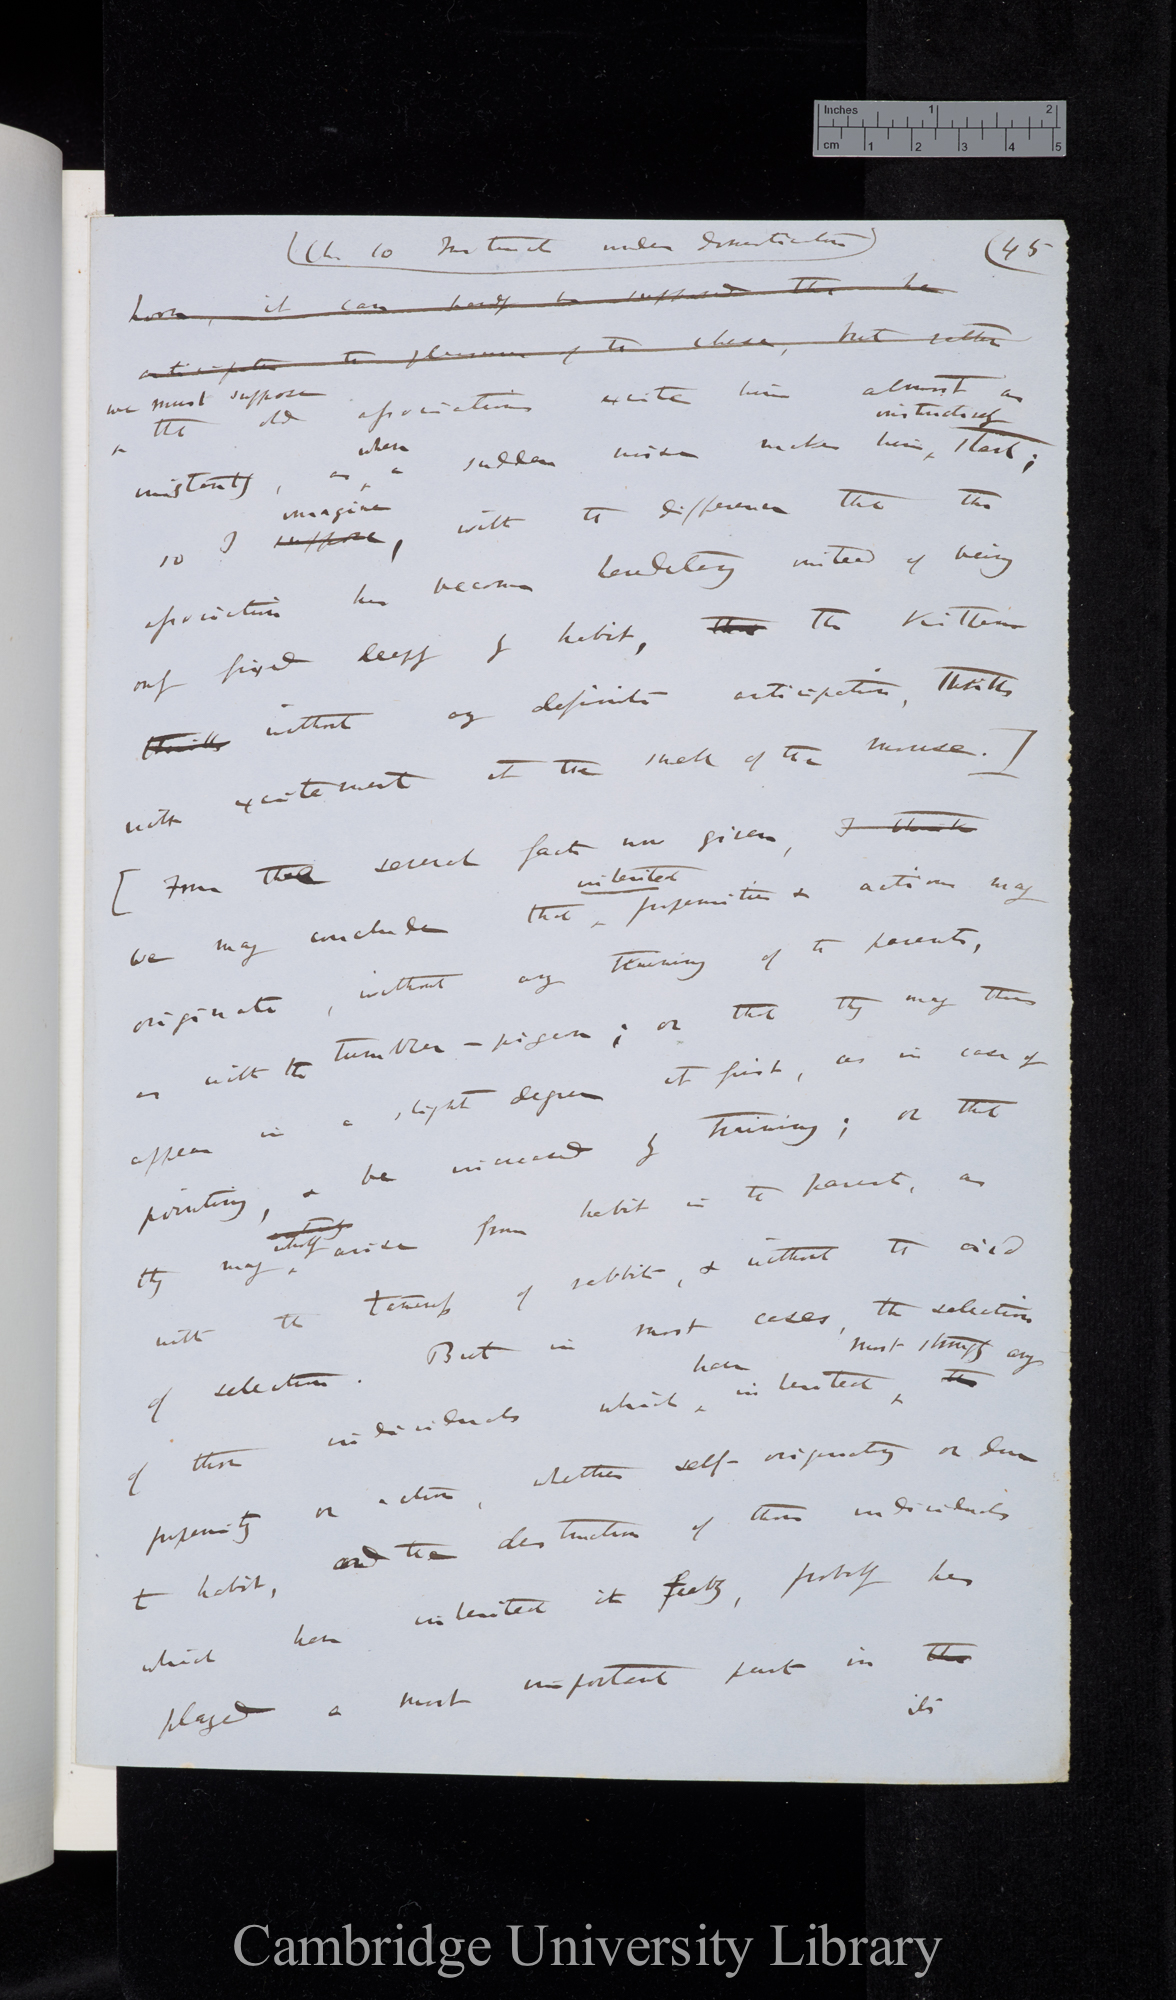 Inches 1 2
cm 1 2 3 4 5
(Ch. 10 Instinct under Domestication) (45
horn, it can hardly be supposed that he
anticipates the pleasures of the chase, but rather
we must suppose
& that old associations excite him almost as
instinctively
when
instantly, as a sudden noise makes him start;
imagine
so I suppose, with the difference that the
association has become hereditary instead of being
only fixed deeply by habit, that the kitten
thrills without any definite anticipation, thrills
with excitement at the smell of the mouse.]
[From the several facts now given, I think
inherited
we may conclude that propensities & actions may
originate, without any training of the parents,
as with the tumbler-pigeon; or that they may thus
appear in a slight degree at first, as in case of
pointing, & be increased by training; or that
wholly
they may arise from habit in the parent, as
with the tameness of rabbits, & without the aid
of selection. But in most cases, the selection
have most strongly any
of those individuals which inherited the
propensity or action, whether self-originating or due
to habit, and the destruction of those individuals
which have inherited it feebly, probably has
played a most important part in the
its
Cambridge University Library